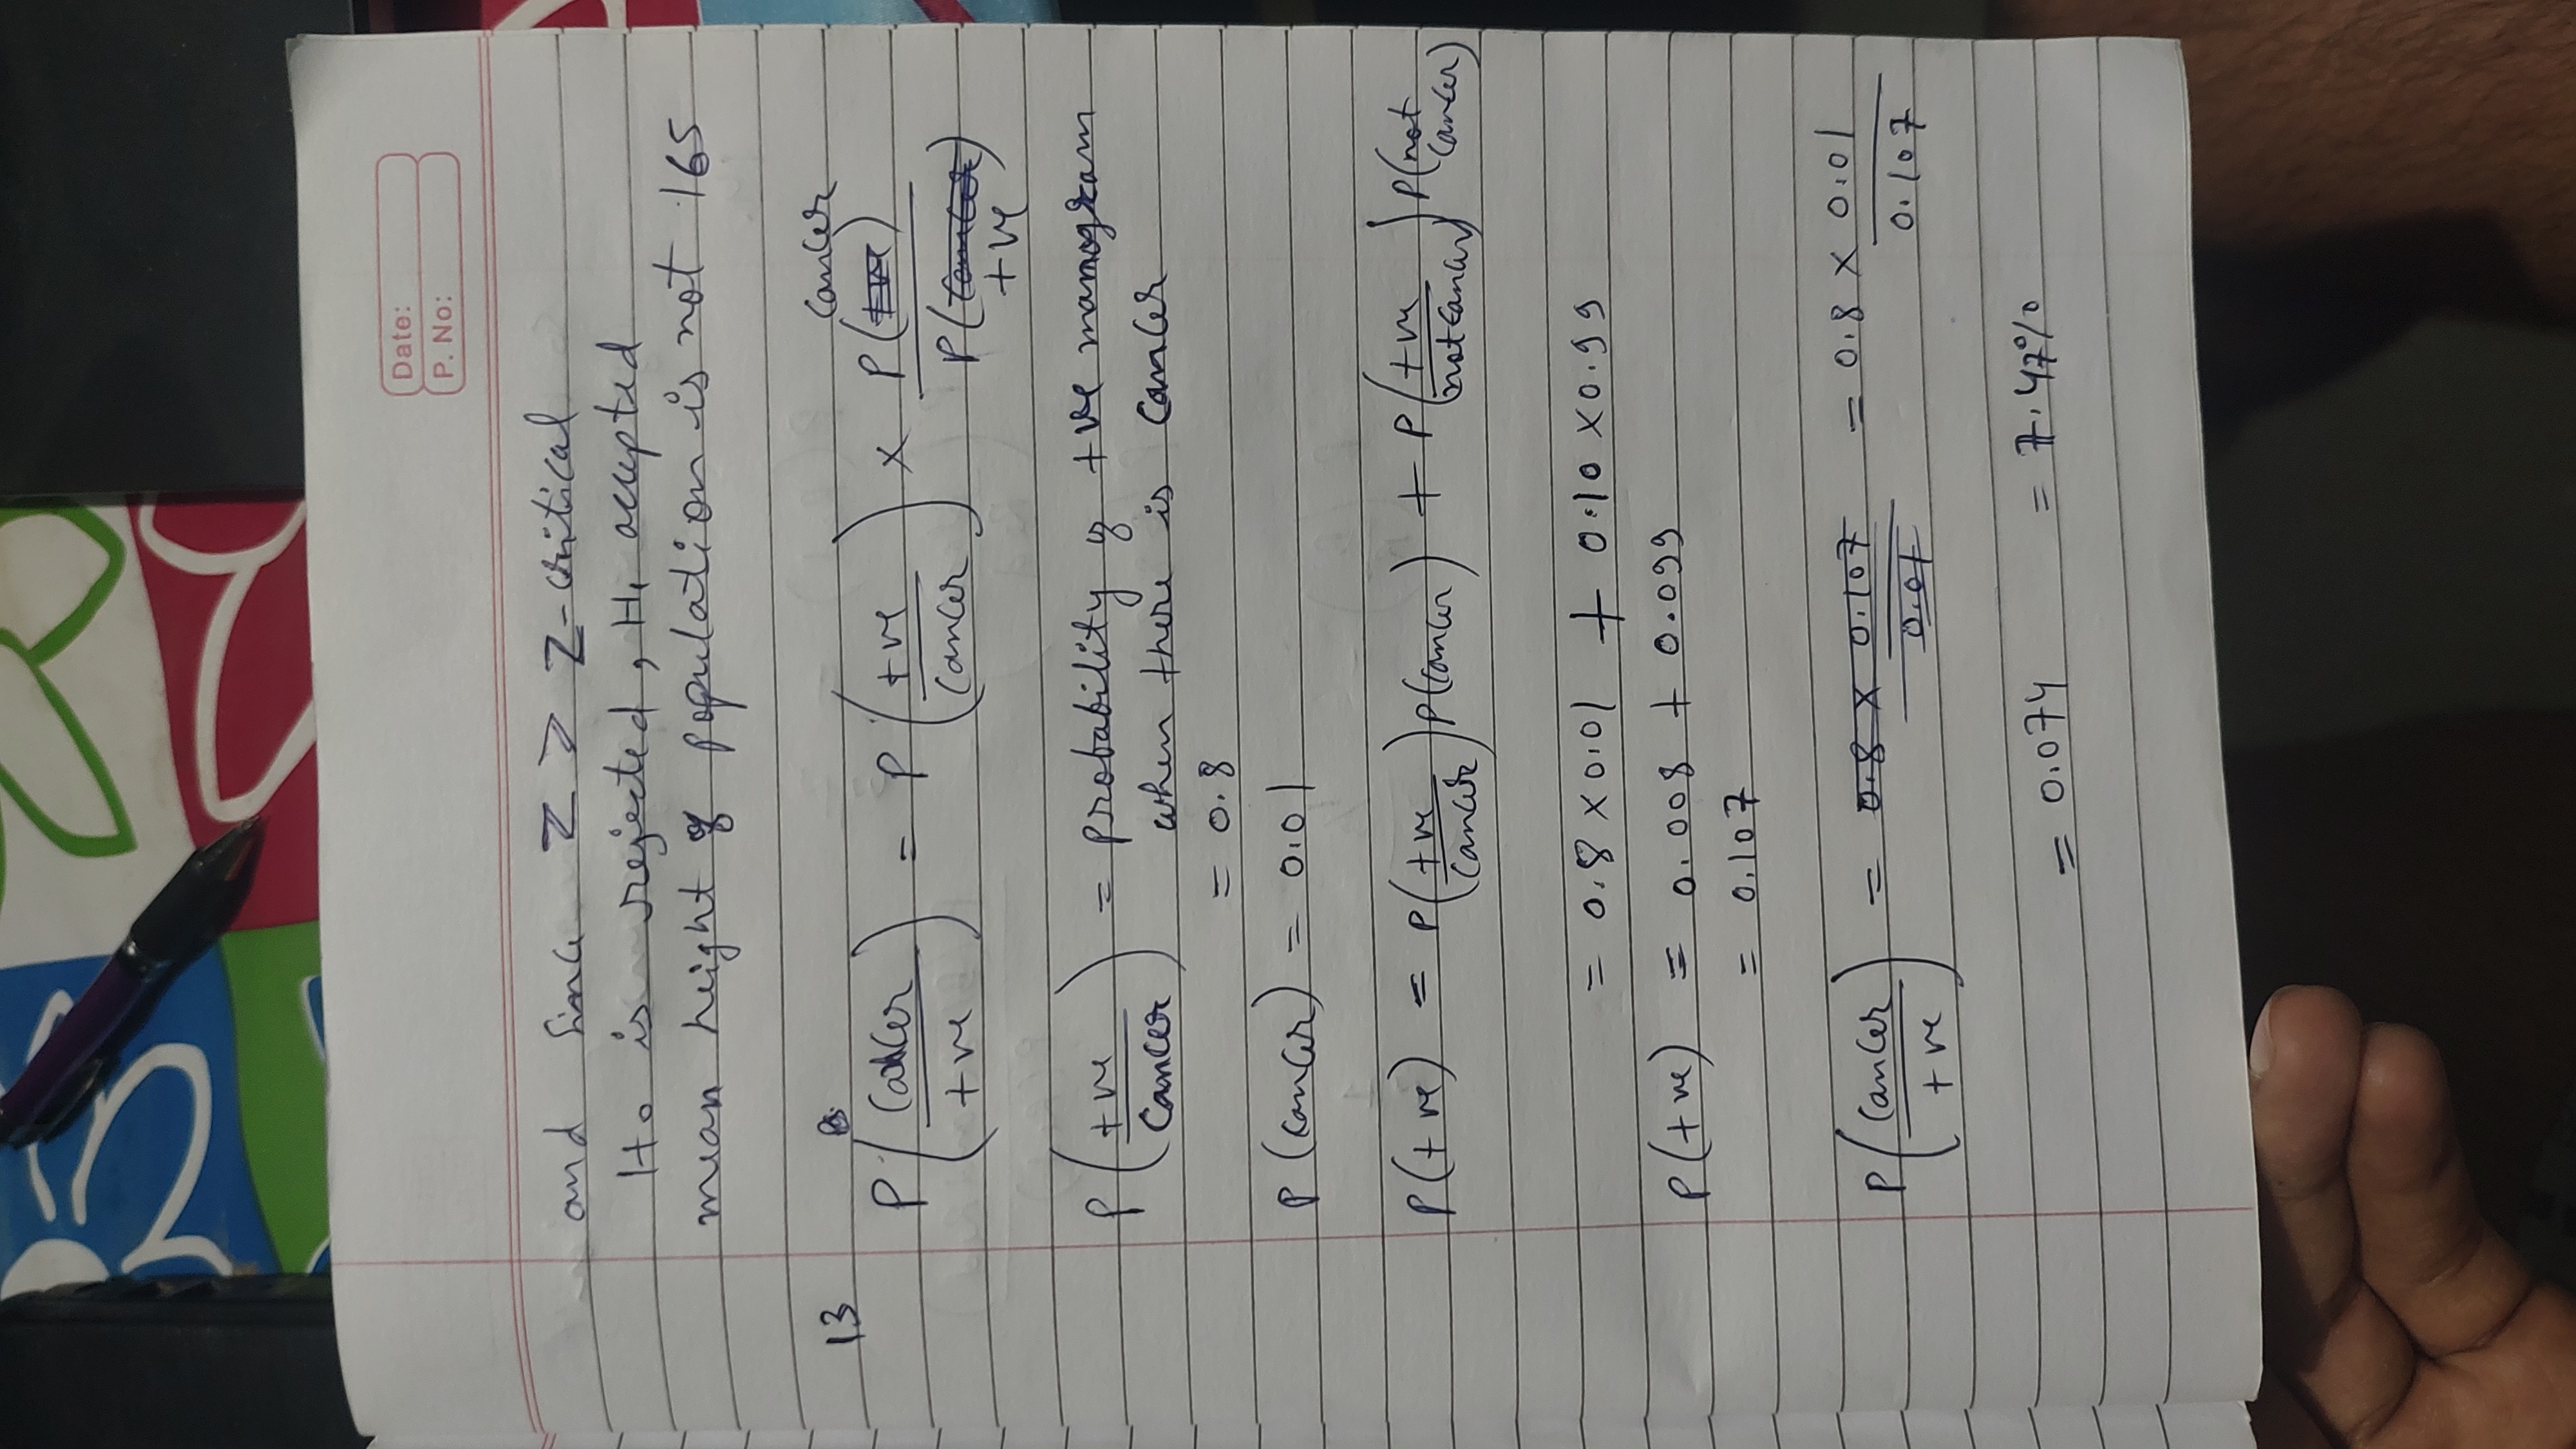 Date:
P. No:
and since Z > Z-critical
H₀ is rejected, H₁ accepted
mean height of population is not 165
13
P(cancer/+ve) = P(+ve/cancer) × P(cancer)/P(+ve)
P(+ve/cancer) = probability of +ve mamogram
when there is cancer
= 0.8
P(cancer) = 0.01
P(+ve) = P(+ve/cancer)P(cancer) + P(+ve/not cancer)P(not cancer)
= 0.8 × 0.01 + 0.10 × 0.99
P(+ve) = 0.008 + 0.099
= 0.107
P(cancer/+ve) = 0.8 × 0.107/0.01 = 0.8 × 0.01/0.107
= 0.074 = 7.47%